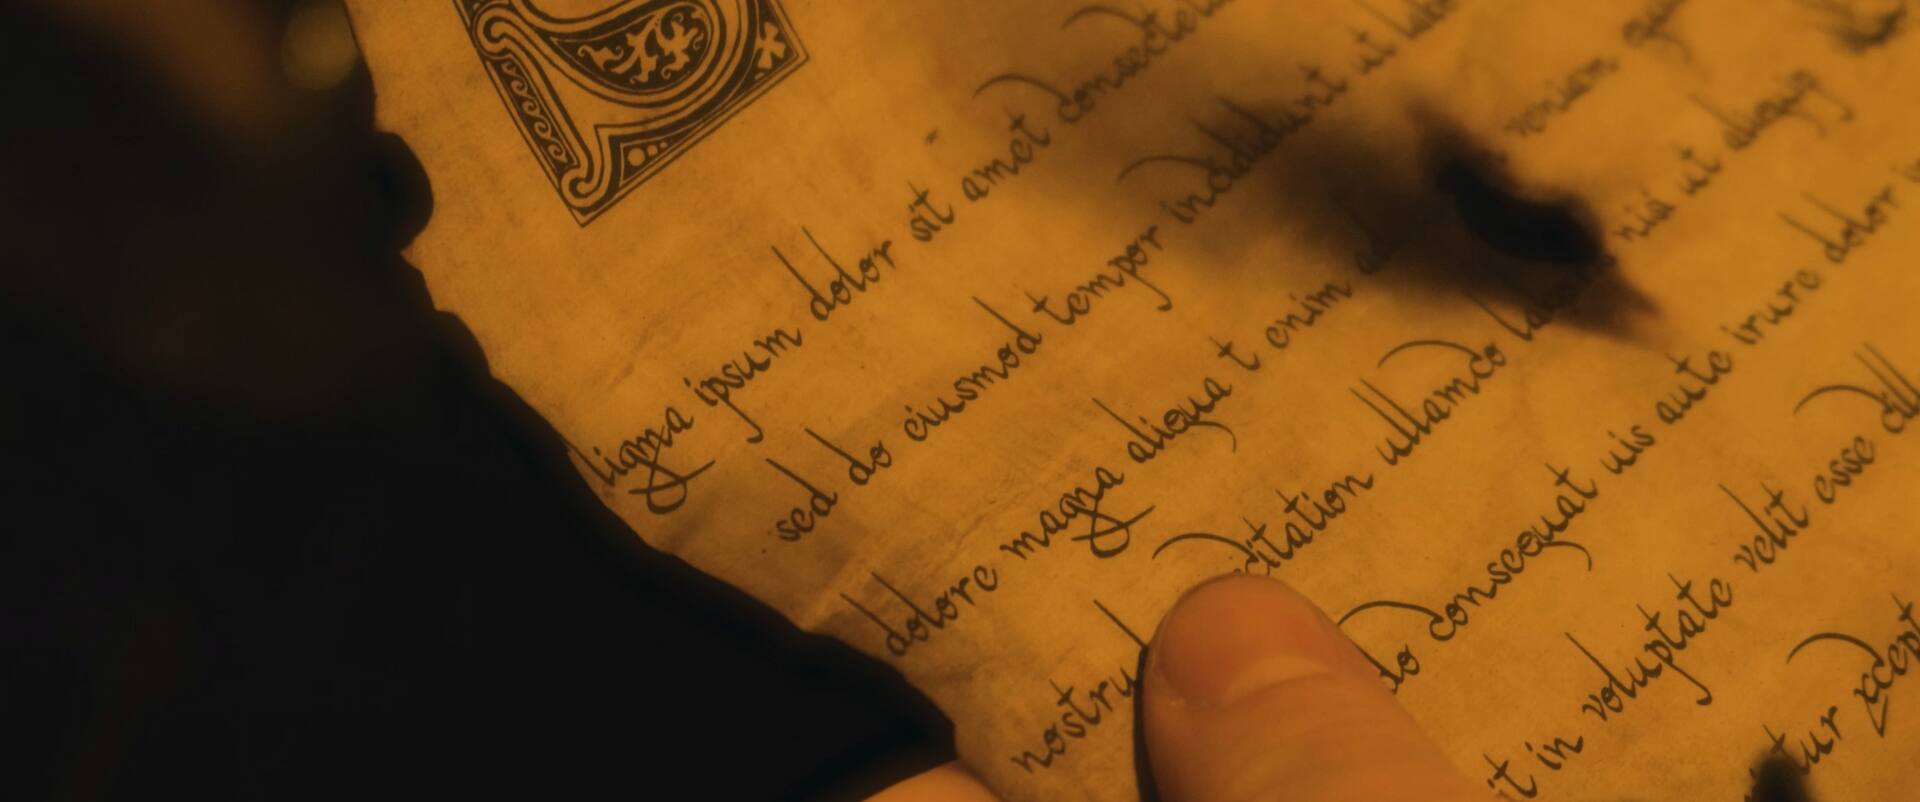 ligma ipsum dolor sit amet consectetu
sed do eiusmod tempor incididunt ut labo
dolore magna aliqua t enim ad veniam qui
nostru citation ullamco nisi ut aliquip
do consequat uis aute irure dolor
it in voluptate velit esse cill
tur xcept